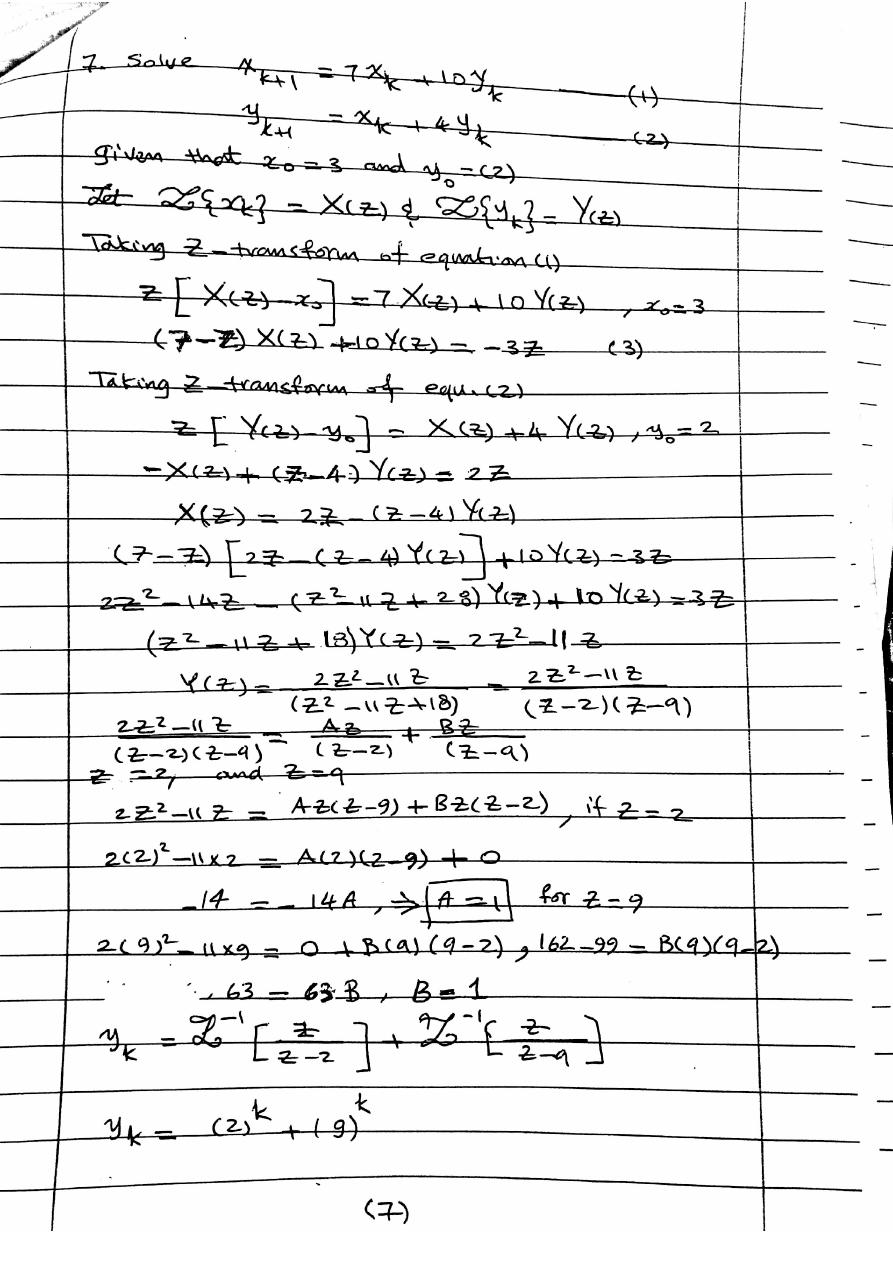 7. Solve x_{k+1} = 7x_k + 10y_k —— (1)
y_{k+1} = x_k + 4y_k —— (2)
given that x_0 = 3 and y_0 = (2)
Let Z{x_k} = X(z) & Z{y_k} = Y(z)
Taking Z-transform of equation (1)
z[X(z) - x_0] = 7X(z) + 10Y(z) , x_0 = 3
(7-z)X(z) + 10Y(z) = -3z (3)
Taking Z-transform of equ. (2)
z[Y(z) - y_0] = X(z) + 4Y(z) , y_0 = 2
-X(z) + (z-4)Y(z) = 2z
X(z) = 2z - (z-4)Y(z)
(7-z)[2z - (z-4)Y(z)] + 10Y(z) = 3z
2z² - 14z - (z² - 11z + 28)Y(z) + 10Y(z) = 3z
(z² - 11z + 18)Y(z) = 2z² - 11z
Y(z) = (2z² - 11z)/(z² - 11z + 18) = (2z² - 11z)/((z-2)(z-9))
(2z² - 11z)/((z-2)(z-9)) = Az/(z-2) + Bz/(z-9)
z = 2, and z = 9
2z² - 11z = Az(z-9) + Bz(z-2) , if z = 2
2(2)² - 11×2 = A(2)(2-9) + 0
-14 = -14A , ⇒ A = 1 for z - 9
2(9)² - 11×9 = 0 + B(9)(9-2) , 162 - 99 = B(9)(9-2)
, 63 = 63B , B = 1
y_k = Z⁻¹[z/(z-2)] + Z⁻¹[z/(z-9)]
y_k = (2)^k + (9)^k
(7)